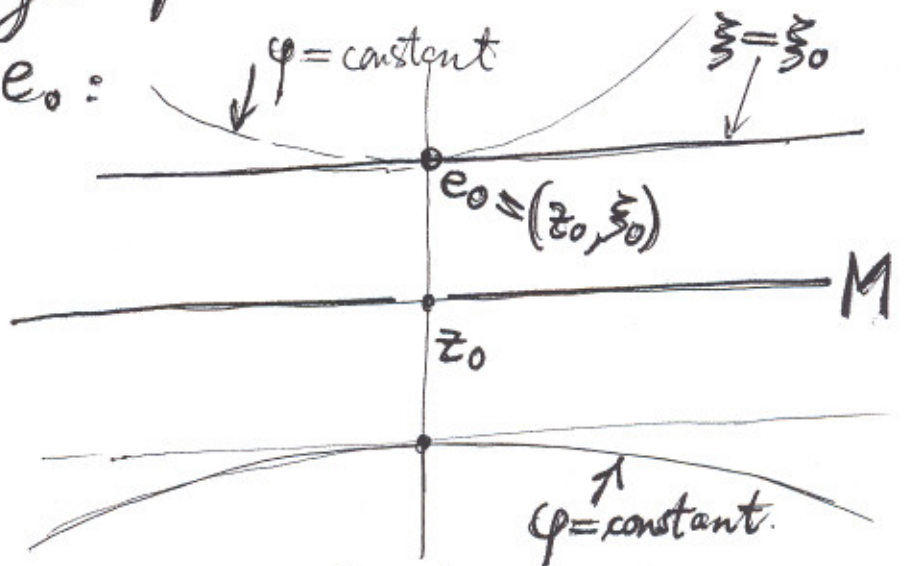 e₀ :
φ = constant
ξ = ξ₀
e₀ = (z₀, ξ₀)
M
z₀
φ = constant.